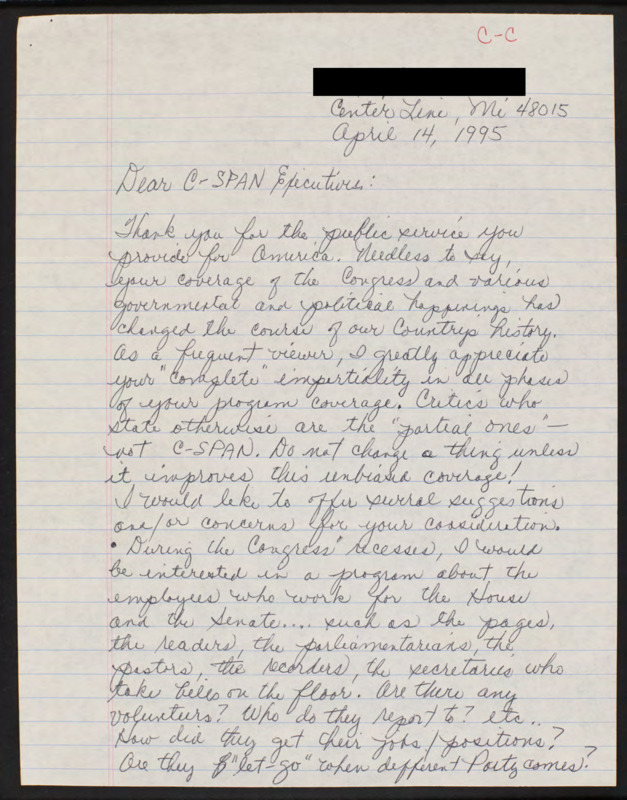 C-C
Center Line, Mi 48015
April 14, 1995
Dear C-SPAN Executives:
Thank you for the public service you
provide for America. Needless to say,
your coverage of the Congress and various
governmental and political happenings has
changed the course of our Countrys history.
As a frequent viewer, I greatly appreciate
your "complete" impartiality in all phases
of your program coverage. Critics who
state otherwise are the "partial ones" —
not C-SPAN. Do not change a thing unless
it improves this unbiased coverage!
I would like to offer several suggestions
and/or concerns for your consideration.
• During the Congress' recesses, I would
be interested in a program about the
employees who work for the House
and the Senate.... such as the pages,
the readers, the parliamentarians, the
pastors, the recorders, the secretaries who
take bills on the floor. Are there any
volunteers? Who do they report to? etc..
How did they get their jobs/positions?
Are they "let-go" when defferent Party comes?